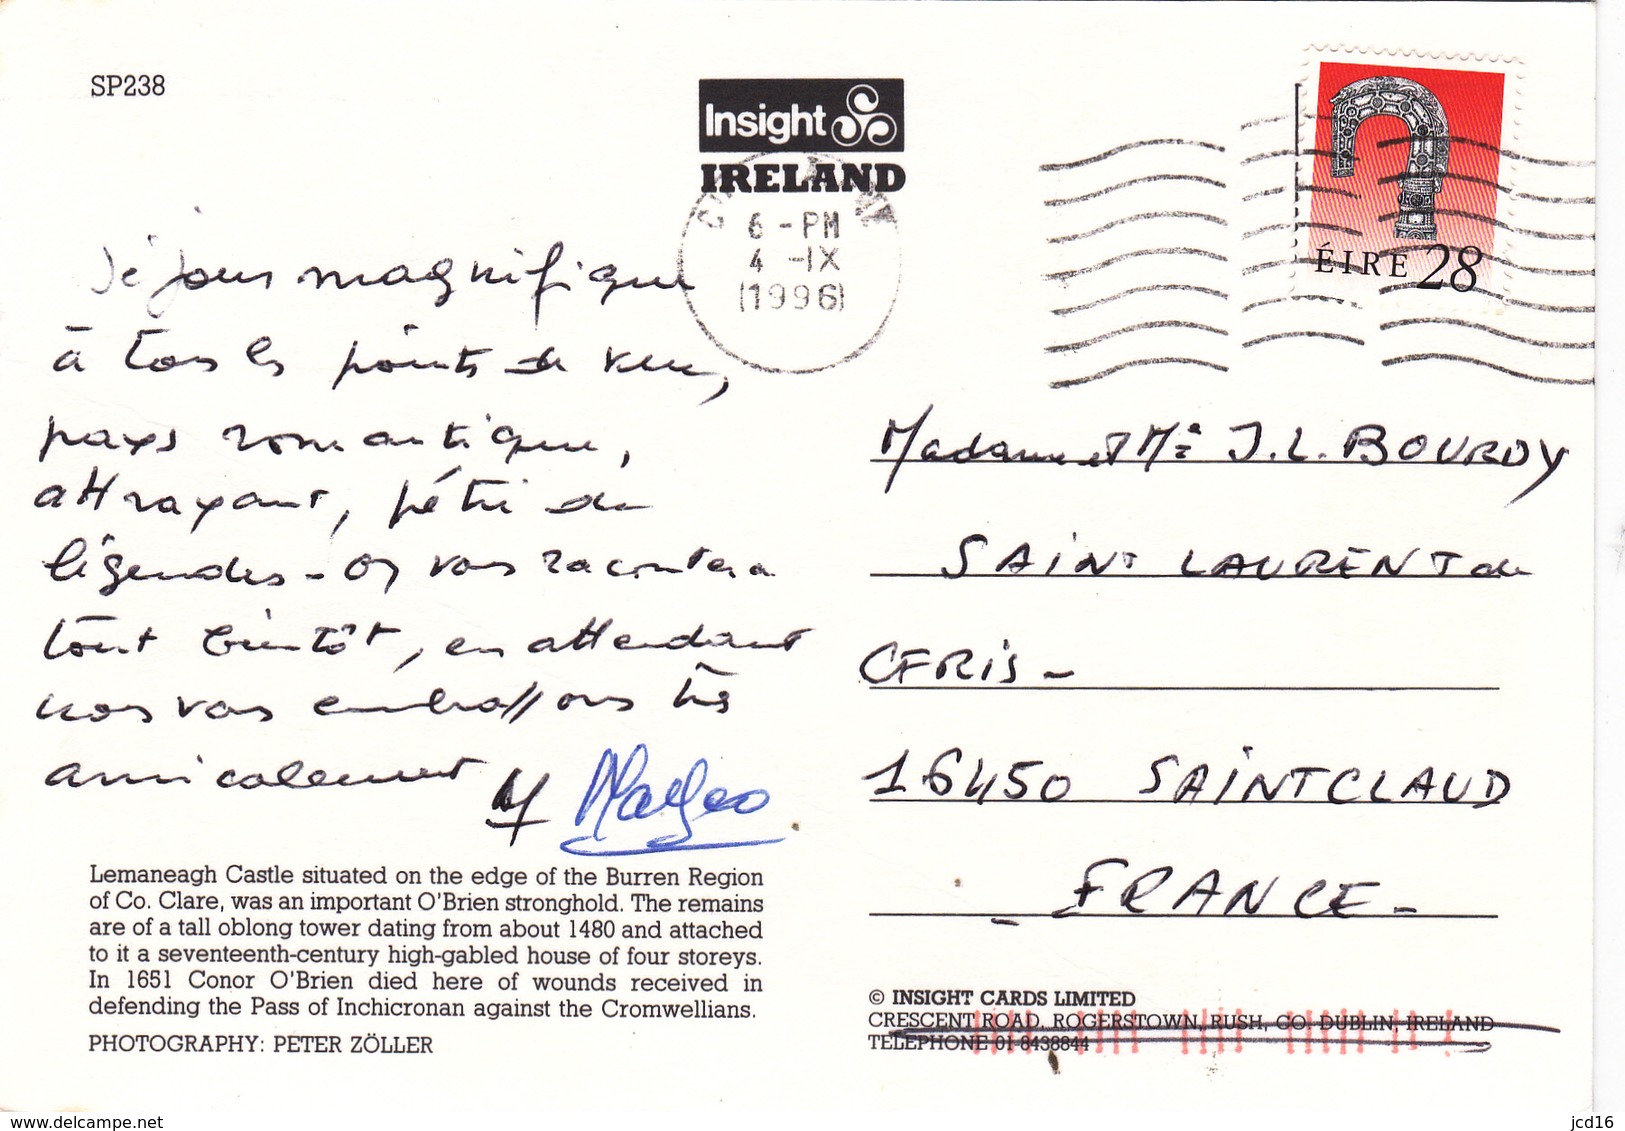 SP238
Insight
IRELAND
6 - PM
4 - IX
(1996)
ÉIRE 28
Séjour magnifique
à tous les points de vue,
pays romantique,
attrayant, pétri de
légendes - On vous racontera
tout bientôt, en attendant
nous vous embrassons très
amicalement
Madame et Mr J.L. BOURDY
SAINT LAURENT de
CERIS -
16450 SAINT CLAUD
- FRANCE -
Lemaneagh Castle situated on the edge of the Burren Region
of Co. Clare, was an important O'Brien stronghold. The remains
are of a tall oblong tower dating from about 1480 and attached
to it a seventeenth-century high-gabled house of four storeys.
In 1651 Conor O'Brien died here of wounds received in
defending the Pass of Inchicronan against the Cromwellians.
PHOTOGRAPHY: PETER ZÖLLER
© INSIGHT CARDS LIMITED
CRESCENT ROAD, ROGERSTOWN, RUSH, CO. DUBLIN, IRELAND
TELEPHONE 01-8438844
www.delcampe.net
jcd16